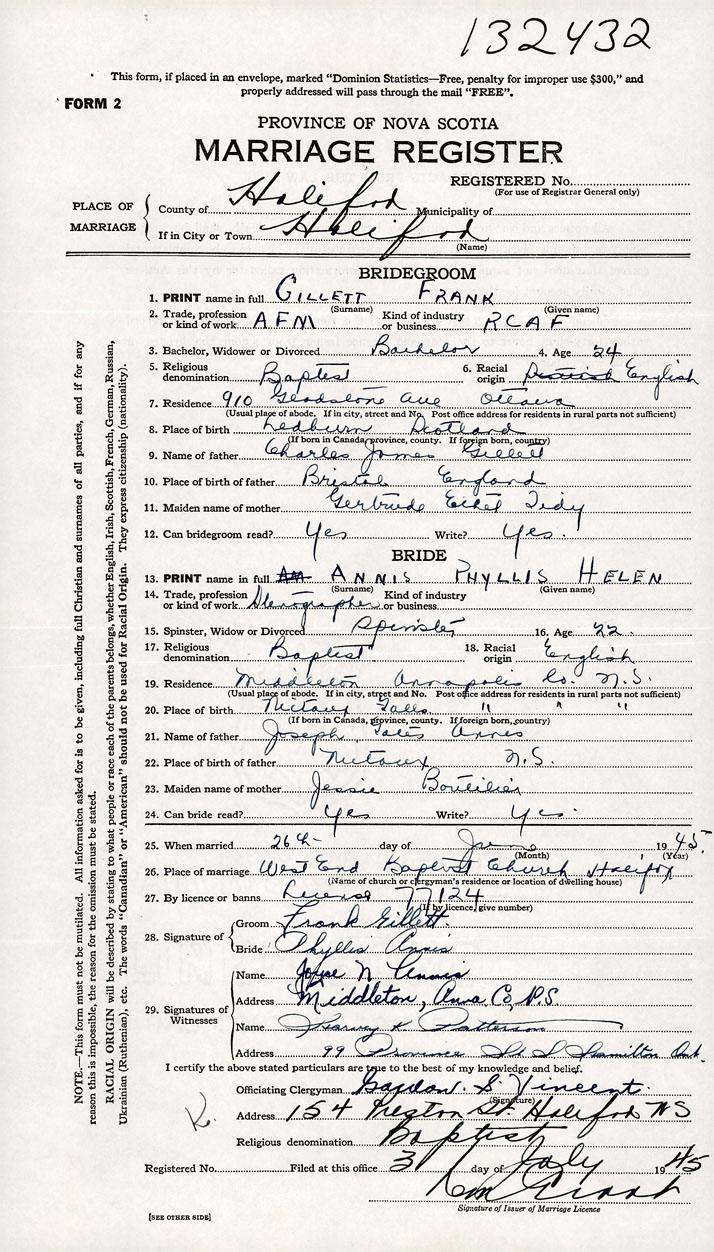 132432
This form, if placed in an envelope, marked "Dominion Statistics—Free, penalty for improper use $300," and
properly addressed will pass through the mail "FREE".
FORM 2
PROVINCE OF NOVA SCOTIA
MARRIAGE REGISTER
REGISTERED No.
(For use of Registrar General only)
PLACE OF MARRIAGE
County of Halifax Municipality of
If in City or Town Halifax
(Name)
BRIDEGROOM
1. PRINT name in full GILLETT FRANK
(Surname) (Given name)
2. Trade, profession or kind of work AFM Kind of industry or business RCAF
3. Bachelor, Widower or Divorced Bachelor 4. Age 24
5. Religious denomination Baptist 6. Racial origin English
7. Residence 910 Gladstone Ave Ottawa
(Usual place of abode. If in city, street and No. Post office address for residents in rural parts not sufficient)
8. Place of birth Scotland
(If born in Canada, province, county. If foreign born, country)
9. Name of father Charles James Gillett
10. Place of birth of father Bristol England
11. Maiden name of mother Gertrude Ethel Tidy
12. Can bridegroom read? Yes Write? Yes.
BRIDE
13. PRINT name in full ANNIS PHYLLIS HELEN
(Surname) (Given name)
14. Trade, profession or kind of work Stenographer Kind of industry or business
15. Spinster, Widow or Divorced Spinster 16. Age 22
17. Religious denomination Baptist 18. Racial origin English
19. Residence Middleton Annapolis Co. N.S.
(Usual place of abode. If in city, street and No. Post office address for residents in rural parts not sufficient)
20. Place of birth Nictaux Falls " " "
(If born in Canada, province, county. If foreign born, country)
21. Name of father Joseph Annis
22. Place of birth of father Nictaux N.S.
23. Maiden name of mother Jessie Boutilier
24. Can bride read? Yes Write? Yes.
25. When married 26th day of June 1945.
(Month) (Year)
26. Place of marriage West End Baptist Church Halifax
(Name of church or clergyman's residence or location of dwelling house)
27. By licence or banns License 77124
(If by licence, give number)
28. Signature of
Groom Frank Gillett
Bride Phyllis Annis
29. Signatures of Witnesses
Name Joyce N Annis
Address Middleton, Anna. Co, N.S.
Name Harvey K Patterson
Address 99 Province St S Hamilton Ont.
I certify the above stated particulars are true to the best of my knowledge and belief.
Officiating Clergyman Gordon S Vincent.
(Signature)
Address 154 Preston St. Halifax NS
Religious denomination Baptist
Registered No. Filed at this office 3 day of July 1945
Signature of Issuer of Marriage Licence
[SEE OTHER SIDE]
NOTE.—This form must not be mutilated. All information asked for is to be given, including full Christian and surnames of all parties, and if for any
reason this is impossible, the reason for the omission must be stated.
RACIAL ORIGIN will be described by stating to what people or race each of the parents belongs, whether English, Irish, Scottish, French, German, Russian,
Ukrainian (Ruthenian), etc. The words "Canadian" or "American" should not be used for Racial Origin. They express citizenship (nationality).